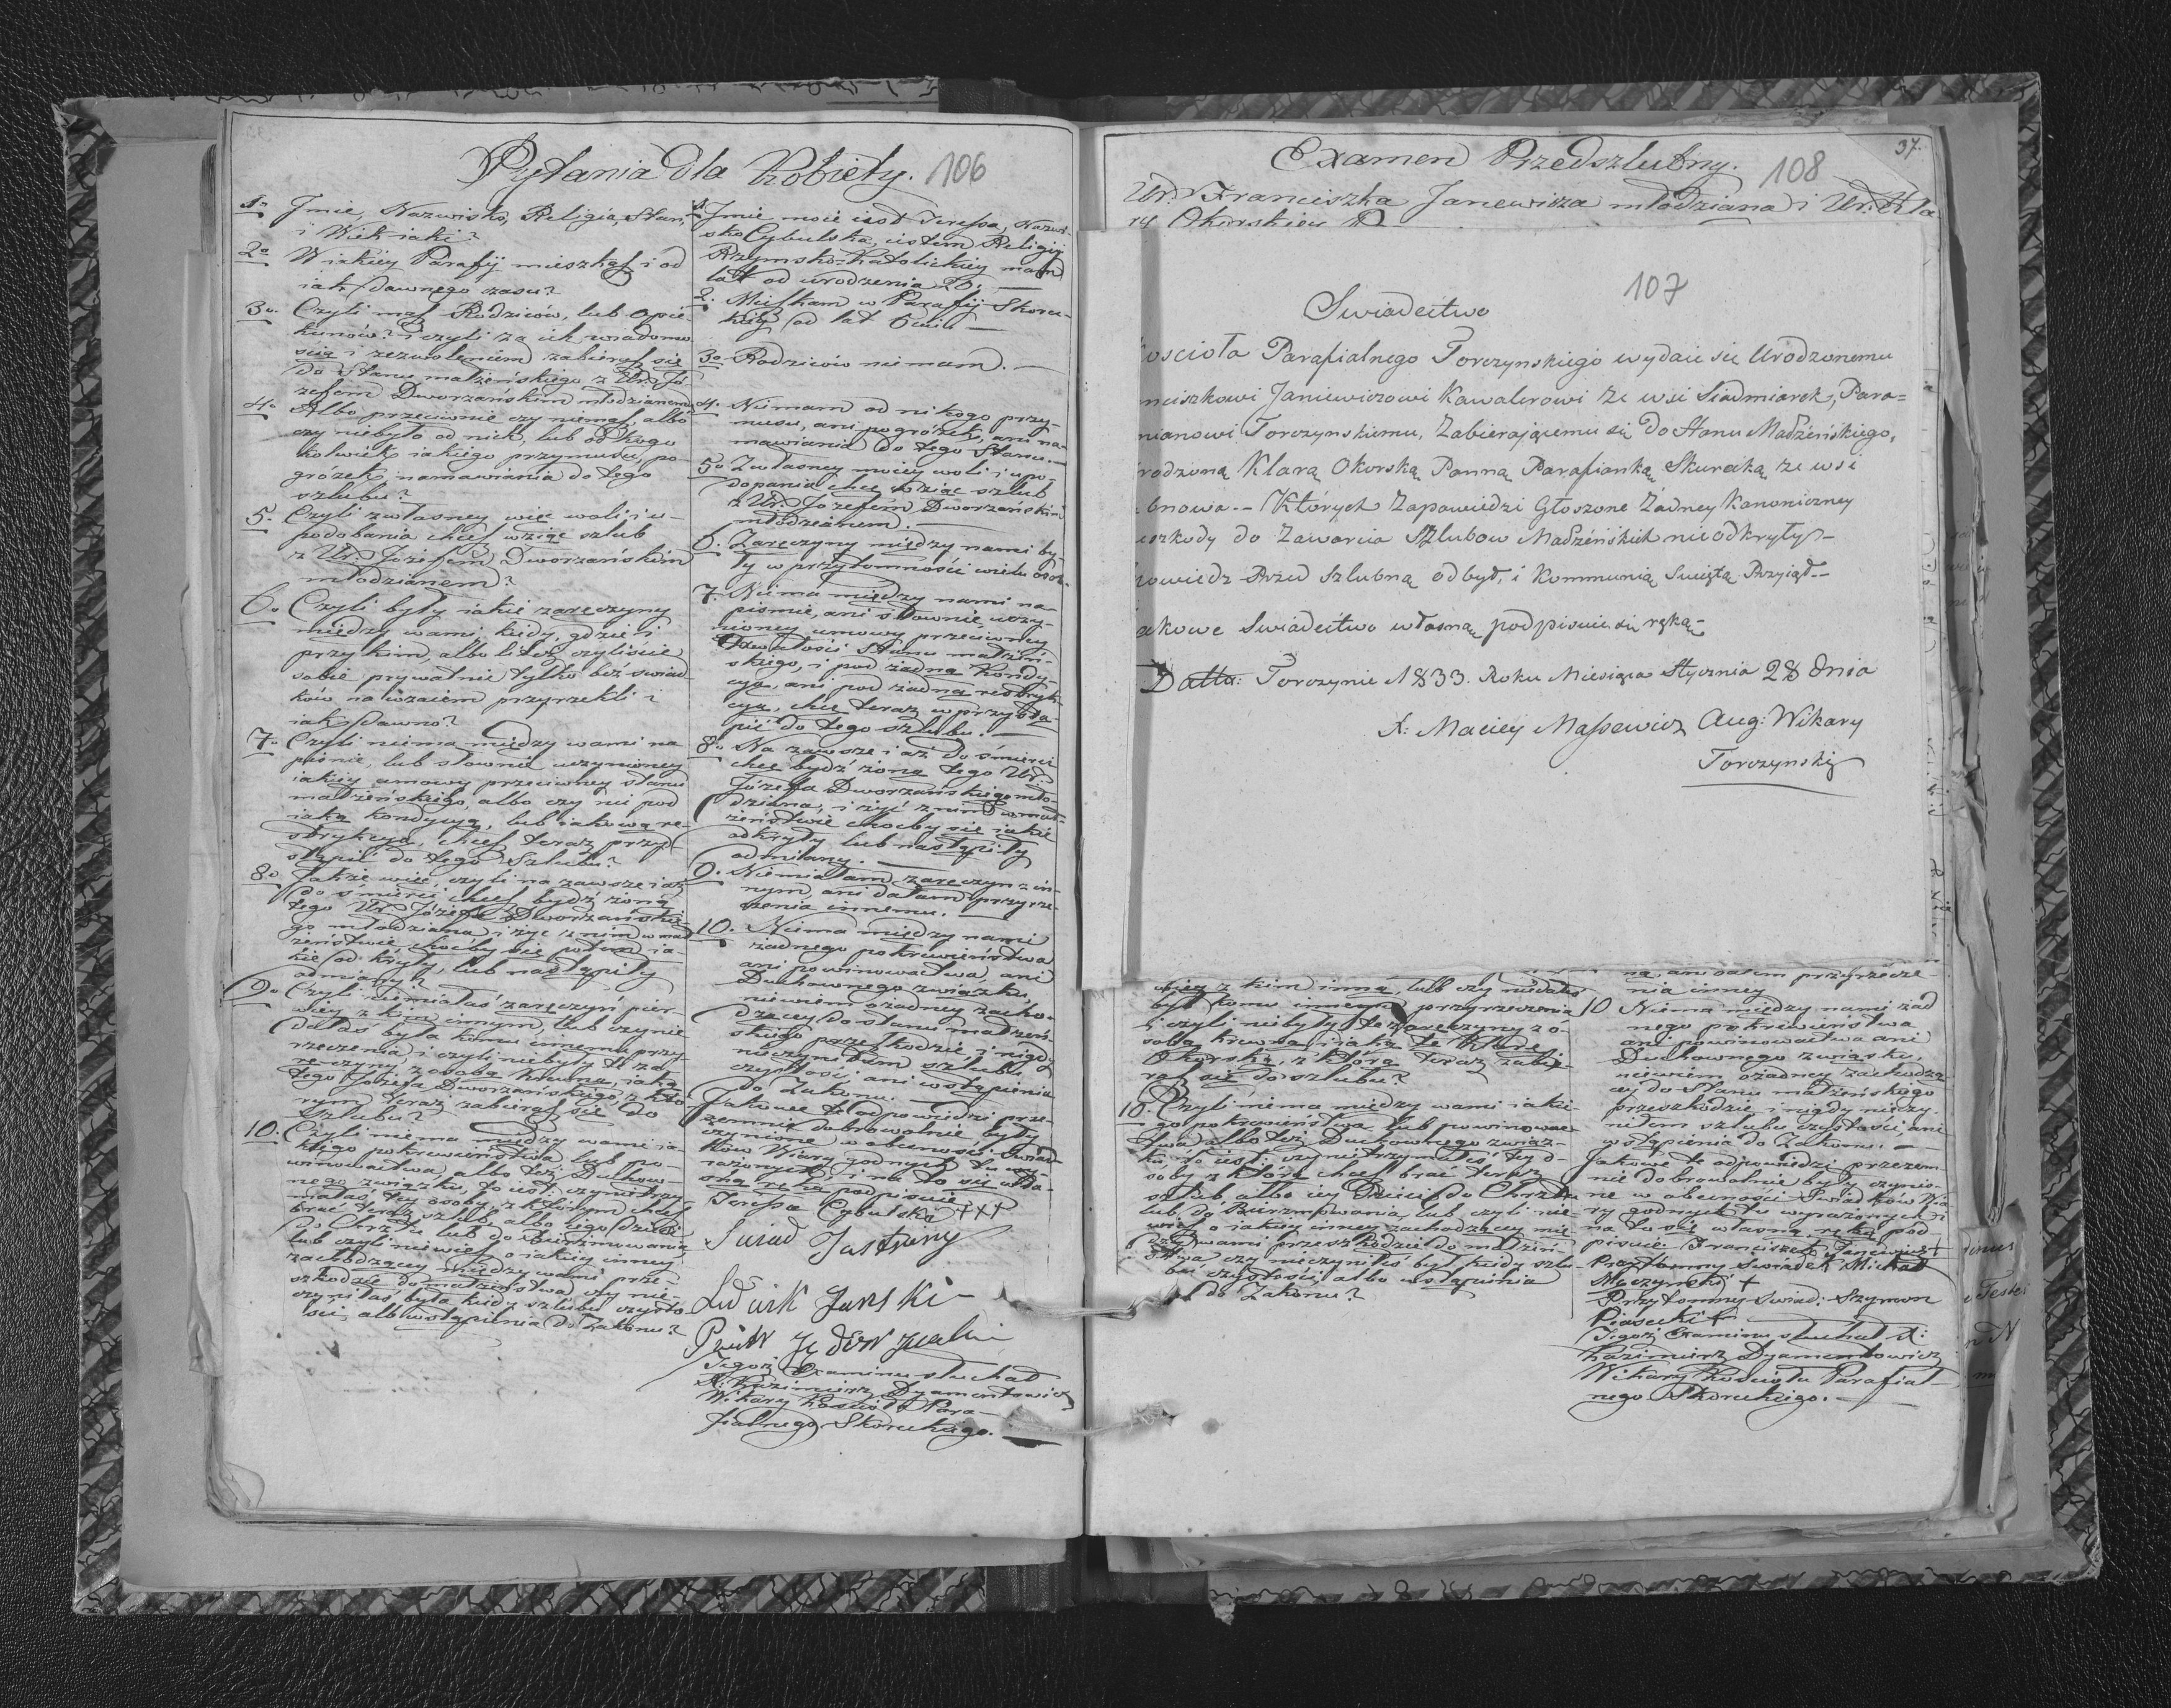 Pytania dla Kobiety. 106
1o Jmie, Nazwisko, Religia, Stan,
i Wiek iaki?
2o W iakiey Parafij mieszkasz i od
iak dawnego czasu?
3o Czyli masz Rodziców, lub Opie-
kunów? i czyli za ich wiadomo
scią i zezwoleniem zabierasz się
do Stanu małżeńskiego z Ur. Jó-
zefem Dworzańskim młodzianem?
4o Albo przeciwnie czy niemasz, albo
czy niebyło od nich, lub od kogo
kolwiek iakiego przymusu, po
gróżek namawiania do tego
szlubu?
5. Czyli z własney więc woli i u-
podobania chcesz wziąć szlub
z Ur. Józefem Dworzańskim
młodzianem?
6o Czyli były iakie zaręczyny
między wami, kiedy, gdzie i
przy kim, albo li też czyliście
sobie prywatnie tylko bez swiad
ków nawzaiem przyrzekli i
iak dawno?
7o Czyli niema między wami na
piśmie, lub słownie uczynioney
iakiey umowy przeciwney stanu
małżeńskiego, albo czy nie pod
iaką kondycyą, lub iakową re-
strykcyą, chcesz teraz przy-
stąpić do tego Szlubu?
8o Jakże więc, czyli na zawsze i aż
do śmierci chcesz bydź żoną
tego Ur. Józefa Dworzańskie-
go młodziana, i żyć z nim w mał
żeństwie, choćby się potem ia-
kie odkryły, lub nastąpiły
odmiany?
9o Czyli niemiałaś zaręczyn pier-
wiey z kim innym, lub czy nie
dałaś była komu innemu przy-
rzeczenia i czyli niebyły te za-
ręczyny z osobą krewną, iaką
tego Józefa Dworzańskiego, z któ-
rym teraz zabierasz się do
Szlubu?
10. Czyli niema między wami ia-
kiego pokrewieństwa lub po-
winowactwa, albo też Duchow-
nego związku, to iest: czy nie trzy-
małaś tey osoby, z którym chcesz
brać teraz szlub, albo iego dzieci
do Chrztu lub do Bierzmowania
lub czyli niewiesz o iakiey inney
zachodzącey między wami prze-
szkodzie do małżeństwa, czy nie-
czyniłaś była kiedy szlubu czysto-
ści, albo wstąpienia do Zakonu?
1. Jmie moie iest Teressa, Nazwi-
sko Cybulska, iestem Religij
Rzymsko-Katolickiey mam
lat od urodzenia 20. —
2. Mieszkam w Parafij Skorec-
kiey od lat
3o Rodziców nie mam. —
4. Niemam od nikogo przy-
musu, ani pogróżek, ani na-
mawiania do tego Stanu. —
5o Z własney moiey woli i upo-
dopania chcę wziąć szlub
z Ur. Józefem Dworzańskim
młodzianem. —
6. Zaręczyny między nami by-
ły w przytomności wielu osob.
7. Niema między nami na
piśmie, ani słownie uczy-
nioney umowy przeciwney
trwałości Stanu małżeń-
skiego, i pod żadną Kondy-
cyą, ani pod żadną restryk-
cyą, chcę teraz przystą-
pić do tego szlubu. —
8o Na zawsze i aż do śmierci
chcę bydź żoną tego Ur.
Józefa Dworzańskiego mło-
dziana, i żyć z nim w mał-
żeństwie choćby się iakie
odkryły lub nastąpiły
odmiany. —
9. Niemiałam zaręczyn z in-
nym, ani dałam przyrze-
czenia innemu. —
10. Niema między nami
żadnego pokrewieństwa
ani powinowactwa ani
Duchownego związku,
niewiem o żadney zacho-
dzącey do stanu małżeń-
skiego przeszkodzie i nigdy
nieczyniłam szlubu
czystości ani wstąpienia
do Zakonu. —
Jakowe te odpowiedzi prze-
zemnie dobrowolnie były
czynione w obecności Świad-
ków Wiary godnych tu wy-
rażonych, i na to się wła-
sną ręką podpisuie
Teressa Cybulska +++
Ludwik Jurski
Tegoż Examinu słuchał
X: Kazimierz Dyamentowicz
Wikary Kościoła Para-
fialnego Skoreckiego. —
37.
Examen Przedszlubny. 108
Ur. Franciszka Janewicza młodziana i Ur. Kla
ry Okorskiey
107
Swiadectwo
oscioła Parafialnego Torczynskiego wydaie się Urodzonemu
nciszkowi Janiewiczowi Kawalerowi ze wsi Siadmiarek, Para=
nianowi Torczynskiemu, Zabieraiącemu się Do Stanu Madżeńskiego,
rodzoną Klarą Okorską Panną Parafianką Skurecką ze wsi
bnowa.-- Których Zapowiedzi Głoszone Żadney Kanoniczney
eszkody do Zawarcia Szlubow Madżeńskich nie odkryły-
owiedz Przed szlubną odbył, i Kommunią Swiętą Przyiął.--
akowe Swiadectwo własną podpisuie się ręką-
Datta: Torczynie 1833. Roku Miesiąca Stycznia 28 dnia
X: Maciey Massewicz Aug: Wikary
Torczynski
wiey z kim inną, lub czy niedałeś
był komu inney przyrzeczenia
i czyli niebyły te zaręczyny z o-
sobą krewną iaką te Klarę
Okorską, z którą teraz zabie-
rasz się do szlubu?
10. Czyli niema między wami iakie-
go pokrewieństwa lub powinowac
twa albo też Duchownego związ-
ku to iest: czy nie trzymałeś tey o-
soby z którą chcesz brać teraz
szlub albo iey Dzieci do Chrztu
lub do Bierzmowania, lub czyli nie-
wiesz o iakiey inney zachodzącey mię
dzy wami przeszkodzie do małżeń-
stwa czy nieczyniłeś był kiedy szlu-
bu czystości albo wstąpienia
do Zakonu?
ną ani dałem przyrzecze-
nia inney
10 Niema między nami żad
nego pokrewieństwa
ani powinowactwa ani
Duchownego związku,
niewiem o żadney zachodzą
cey do Stanu małżeńskiego
przeszkodzie i nigdy nieczy-
niłem szlubu czystości, ani
wstąpienia do Zakonu. —
Jakowe te odpowiedzi przezem-
nie dobrowolnie były czynio-
ne w obecności Swiadków Wia
ry godnych tu wyrażonych i
na to się własną ręką pod
pisuie: Franciszek Janewicz +
Przytomny Swiadek Michał
Moczymski +
Przytomny Swiad: Szymon
Piasecki +
Tegoż Examinu słuchał X:
Kazimierz Dyamentowicz
Wikary Kościoła Parafial-
nego Skoreckiego. —